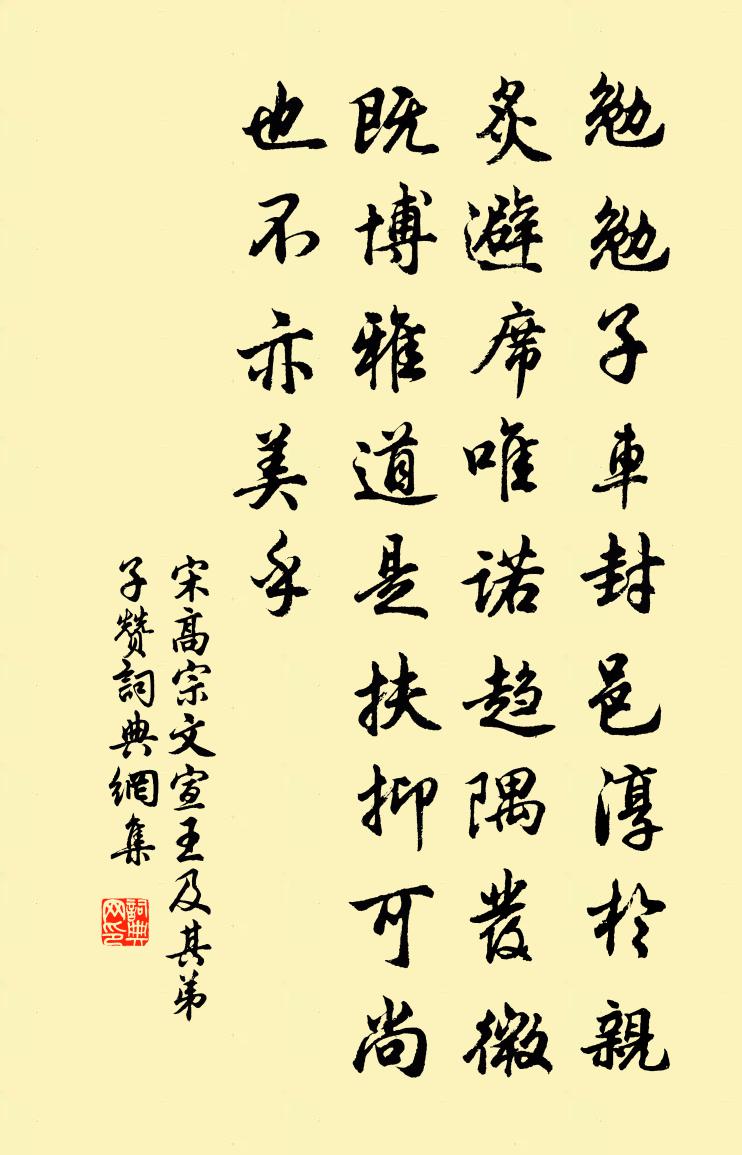 勉勉子車封邑淳於親
炙避席唯諾趋隅發微
既博雅道是扶抑可尚
也不亦美乎
宋高宗文宣王及其弟
子赞詞典網集
詞典
网印